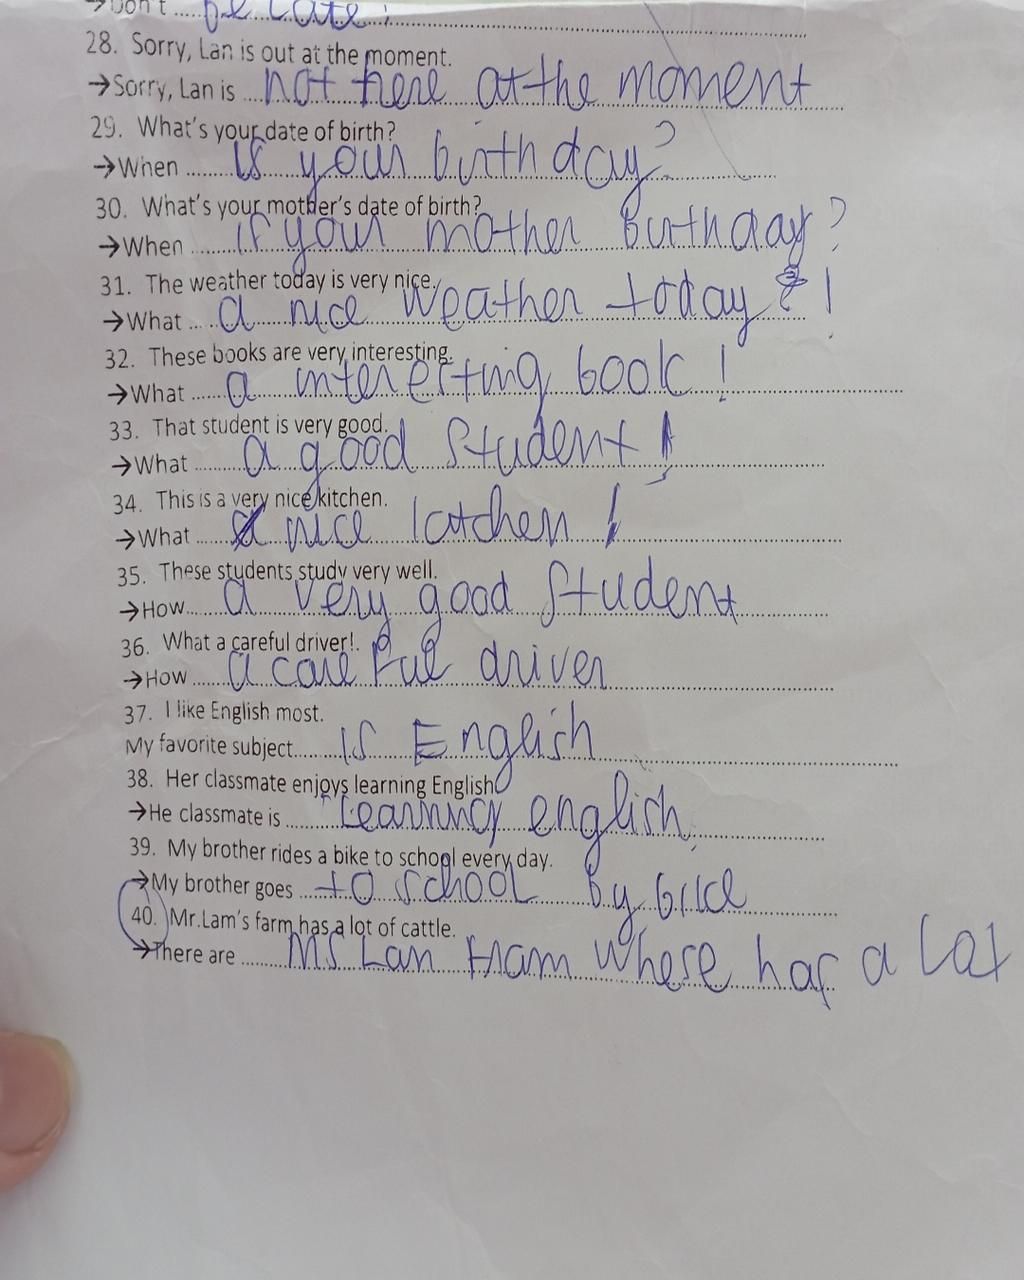 →Don't be late!
28. Sorry, Lan is out at the moment.
→Sorry, Lan is not here at the moment
29. What's your date of birth?
→When is your birth day?
30. What's your mother's date of birth?
→When is your mother birthday?
31. The weather today is very nice.
→What a nice weather today !
32. These books are very interesting.
→What a interesting book !
33. That student is very good.
→What a good student !
34. This is a very nice kitchen.
→What a nice !
35. These students study very well.
→How a very good student
36. What a careful driver!.
→How a careful driver
37. I like English most.
My favorite subject is English
38. Her classmate enjoys learning English
→He classmate is learning english
39. My brother rides a bike to school every day.
→My brother goes to school by bike
40. Mr.Lam's farm has a lot of cattle.
→There are Ms Lan fram where has a lot